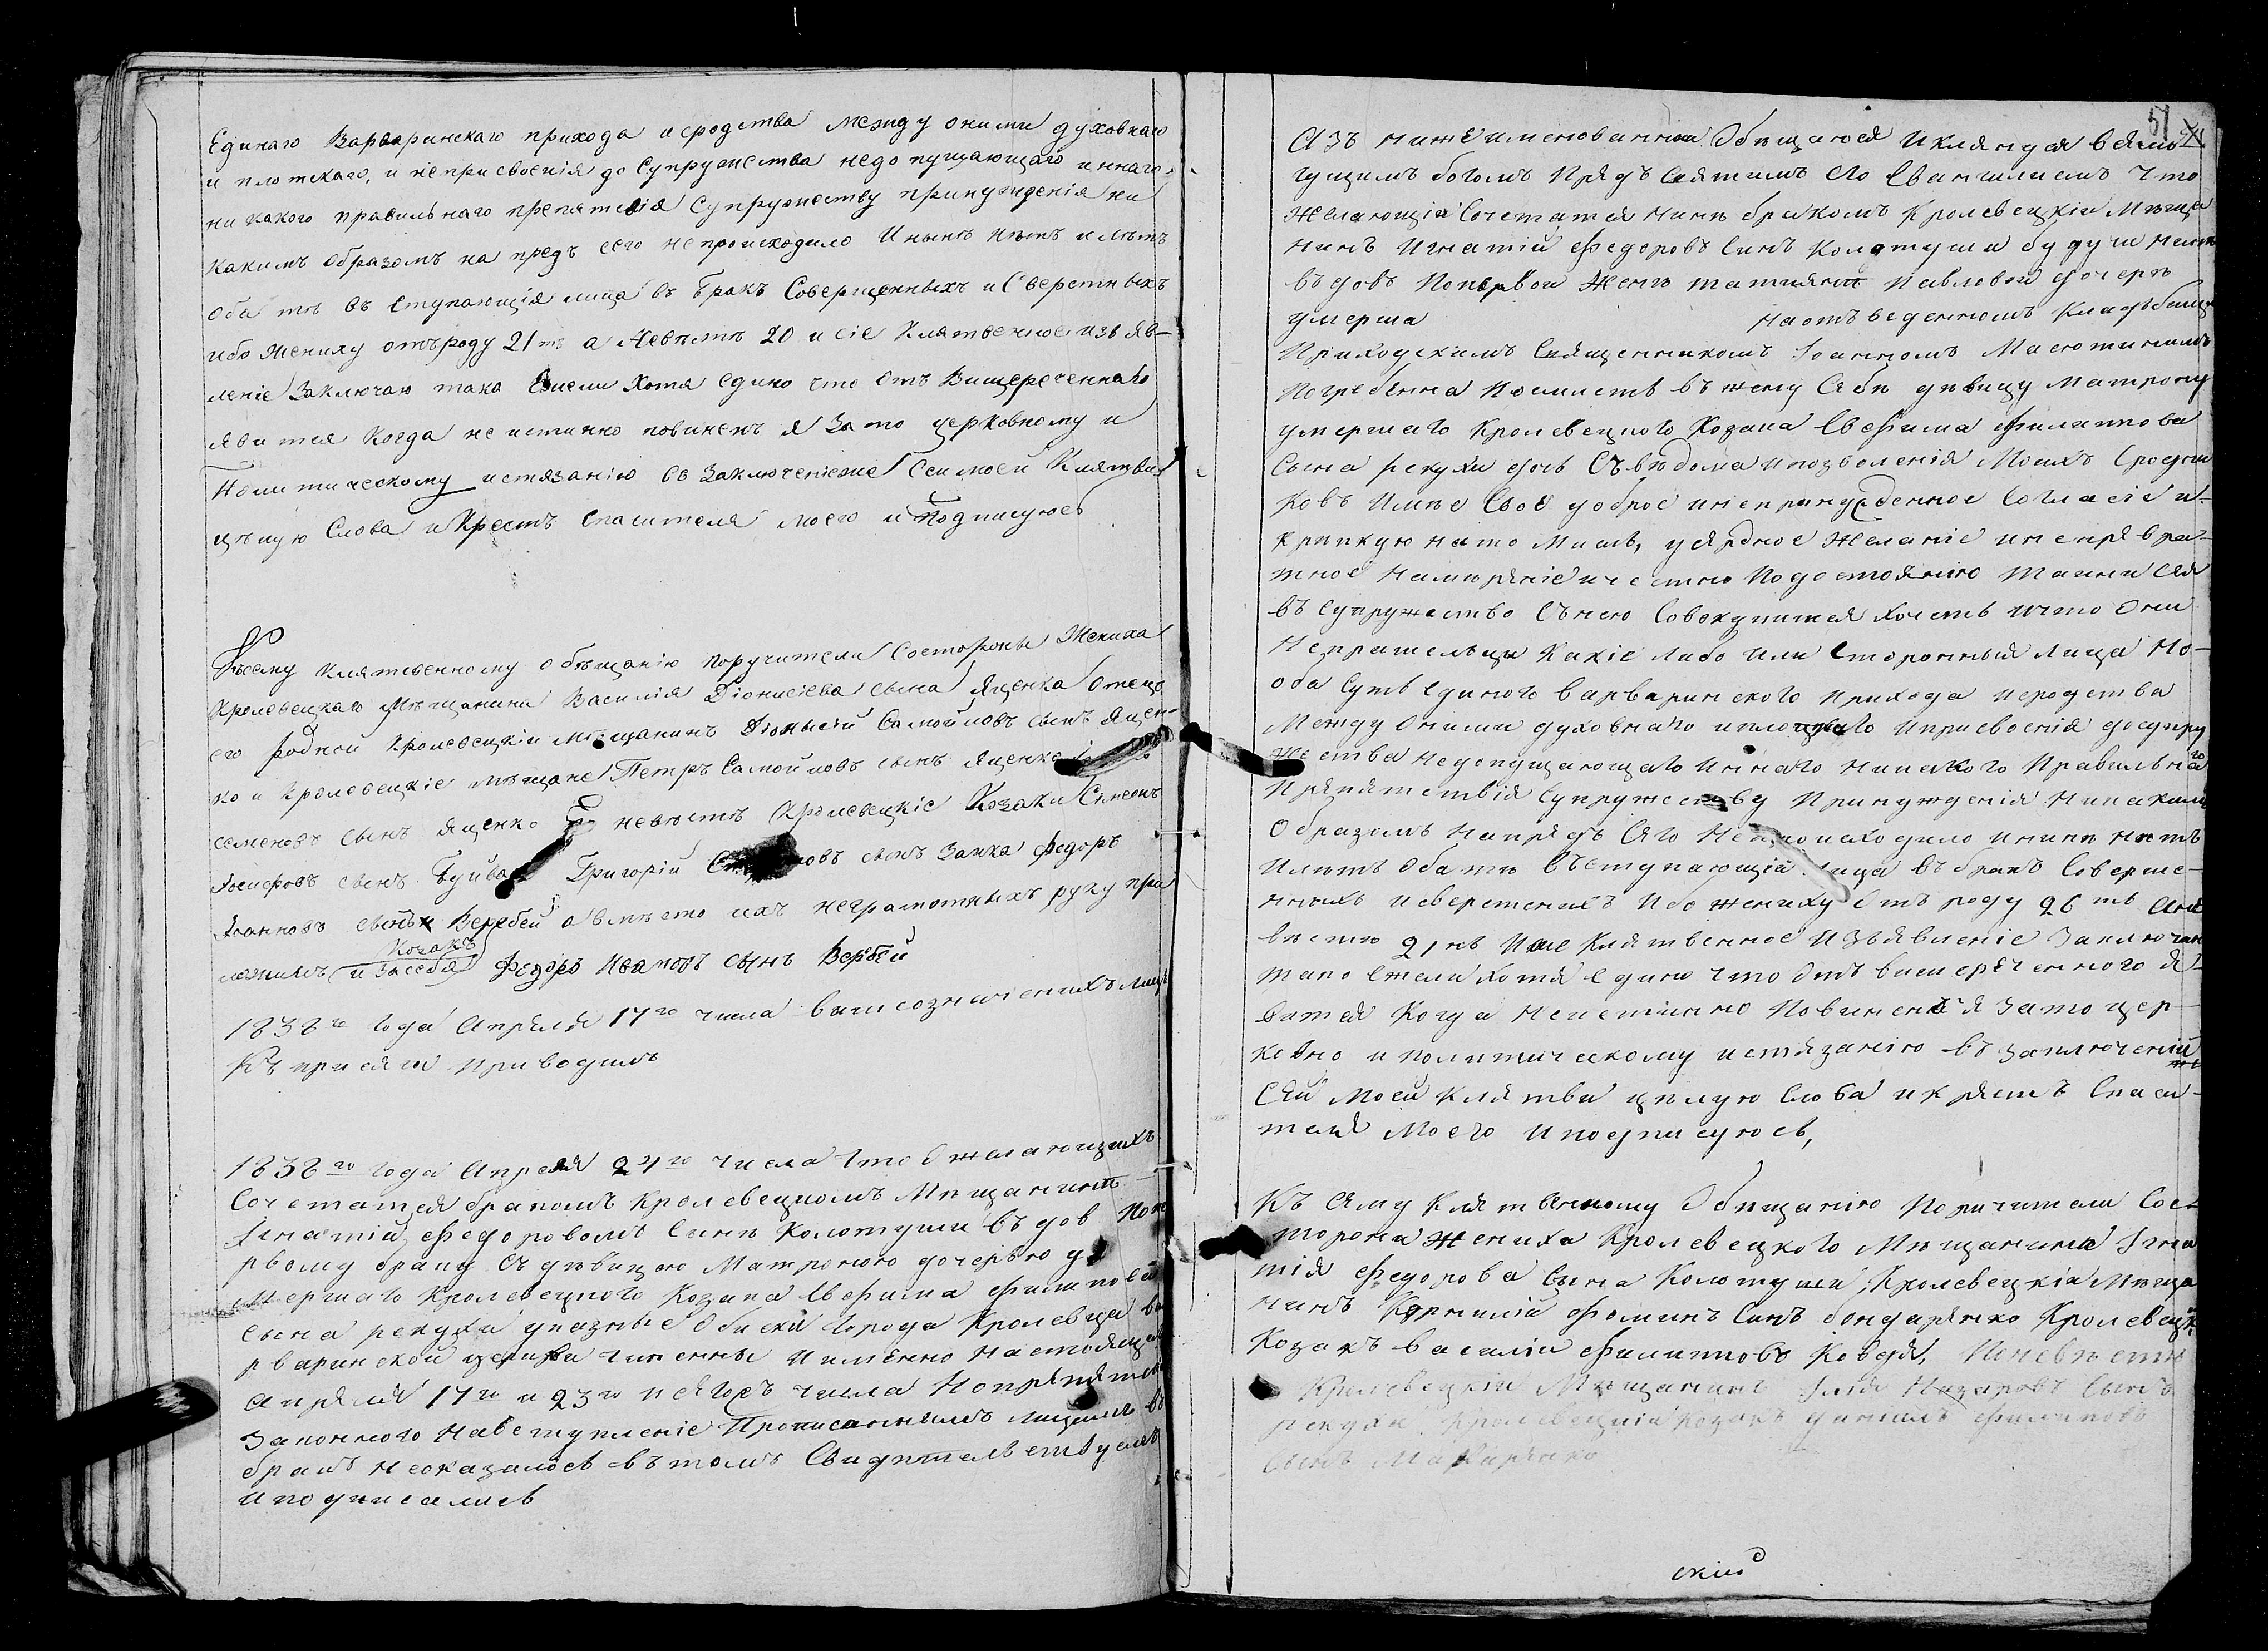 Единаго Варваринскаго прихода и сродства между оними духовнаго
и плотскаго, и неприсвоенія до Супружества недопущающаго иннаго
ни какого правильнаго препятствія Супружеству принужденія ни
какимъ образомъ на предъ сего непроисходило И нынѣ нѣтъ и лѣтъ
оба тѣ въ ступающія лица въ бракъ Совершенныхъ и Сверстныхъ
ибо Жениху отъроду 21 тъ а Невѣстѣ 20 и сіе Клятвенное изъяв-
леніе Заключаю тако Ежели Хотя едино что Отъ Вишереченнаго
явится Когда неистинно повиненъ я За то церковному и
Политическому истязанію въ Заключеніеже Сей моей Клятви
цѣлую Слова и Крестъ Спасителя моего и Подписуюсь
Ксему Клятвенному обѣщанію поручители Состороны Жениха
Кролевецкаго Мѣщанина Василія Діонисіева сына Яценка Отецъ
его Родной Кролевецкій мѣщанинъ Діонисій Самойловъ сынъ Яцен-
ко и Кролевецкіе мѣщане Петръ Самойловъ сынъ Яценко
семеновъ сынъ Яценко невѣстѣ Кролевецкіе Козаки Симеонъ
Іосифовъ сынъ Буйва Григорій сынъ Заика Федоръ
Іоанновъ сынъ Веребей а вмѣсто ихъ неграмотныхъ руку при
Козакъ
ложилъ и Засебя Федоръ Ивановъ сынъ Вербей
1838 го Года Апреля 17 го числа вишеозначенихъ лицъ
Къ присяги приводилъ
1838 го Года Апреля 24 го Числа Что Ожелающихъ
Сочетатся бракомъ Кролевецкомъ Мѣщанинѣ
Игнатій Федоровомъ Синѣ Колотуши въдов
рвому браку Съ дѣвицею Матроною дочерью у
мершаго Кролевецкого Козака Евфима Филипова
Сына рекухи указные Обиски Города Кролевца ва
рваринской церкви Чиненны И имѣнно Настоящаго
апреля 17 го и 23 го и сегожъ числа Нопрепятст
Законного Навступленіе Прописаннимъ лицамъ въ
бракъ Неоказалось въ томъ Свидѣтельствуемъ
и подписались
51
Азъ нижеименованний Обѣщаюся Иклянуся всемо
гущимъ богомъ Предъ Святимъ Его Евангилиемъ Что
Желающій Сочетатся нинѣ бракомъ Кролевецкій Мѣща
нинъ Игнатій Федоровъ Синъ Колотуша будучи нинѣ
въдовъ Попервой Женѣ татіянѣ Павловой дочерѣ
умерша Наотъведенномъ Кладьбищѣ
Приходскимъ Священникомъ Іоанномъ Масютинимъ
Погребенна Поемлетъ въ жену Себѣ дѣвицу Матрону
умершаго Кролевецкого Козака Евфима Филиппова
Сына рекухи дочь Съвѣдома ипозволенія Моихъ Сродни
ковъ Имѣе Свое доброе инепринужденное Согласіе и
крѣпкую нато Мисль, усердное Желаніе инепреврат-
тное Намиреніе и честно Подостоянію Тайни Сея
въ Супружество Снею Совокупится Хочетъ что Они
Непришельци Какіе либо Или Сторонныя Лица Но-
оба Суть Единого варваринского Прихода исродства
Между Оними духовнаго иплоцкаго Иприсвоенія досупру
жества Недопущающаго Иннаго Никакого Правильнаго
Препятствія Супружеству Принужденія Никакимъ
Образомъ Напредъ Сего Непроисходило инине Нетъ
Илѣтъ Обатѣ Въступающій лица въбракъ Соверше-
нныхъ исверстнихъ Ибо жениху Отъ роду 26 тъ Ане
вѣсте 21 нъ И сие Клятвенное Изъявленіе Заключаю
тако Ежели хотя Едино что Отъ вишеречонного я-
вится Когда Неистинно Повиненъ я Зато цер-
ковно и политическому истязанію въ Заключеній
же
Сей Моей Клятви цѣлую Слова икрестъ Спаси-
теля Моего Иподписуюсь,
Къ Сему Клятвенному Обѣщанію Поручители Сос
торони Жениха Кролевецкого Мѣщанина Игна
тія Федорова Сына Колотуши, Кролевецкій Мѣща
нинъ Корнилій Фоминъ Синъ бондаренко Кролевецк
Козакъ василій Филипповъ Ковдя, Поневѣсти
Кролевецкій Мѣщанинъ Илія Назаровъ Сынъ
рекуха Кролевецкій козакъ Даніилъ Филиповъ
Сынъ Макаренко
скій